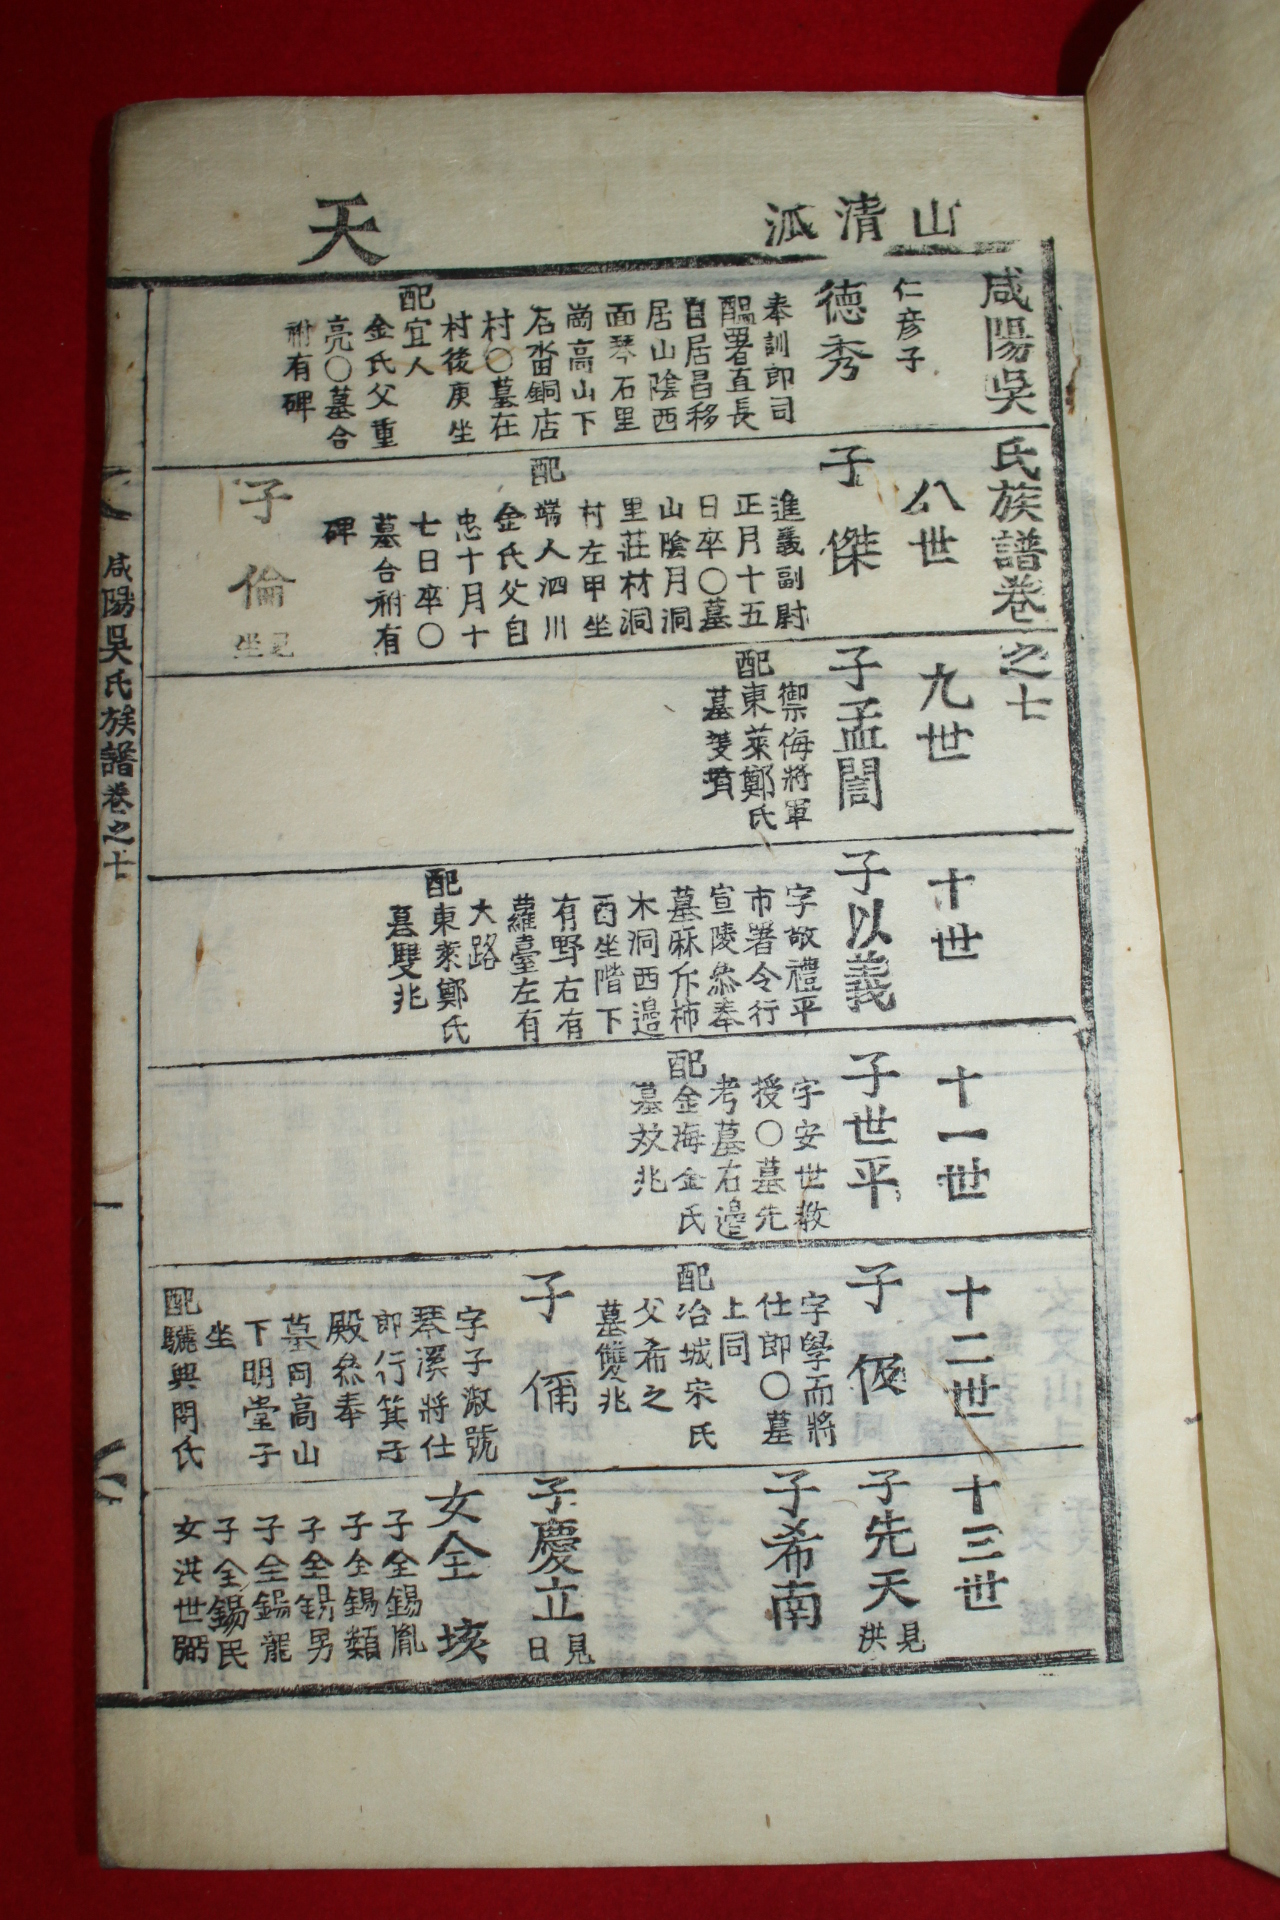 山清派
天
咸陽吳氏族譜卷之七
仁彦子
德秀
奉訓郎司
醞署直長
自居昌移
居山陰西
面琴石里
崗高山下
店畓銅店
村〇墓在
村後庚坐
配宜人
金氏父重
亮〇墓合
祔有碑
八世
子傑
進義副尉
正月十五
日卒〇墓
山陰月洞
里莊材洞
村左甲坐
配端人泗川
金氏父自
忠十月十
七日卒〇
墓合祔有
碑
子倫
見坐
九世
子孟誾
禦侮將軍
配東萊鄭氏
墓雙墳
十世
子以義
字敬禮平
市署令行
宣陵叅奉
墓麻斥柿
木洞西邉
酉坐階下
有野右有
蘿臺左有
大路
配東萊鄭氏
墓雙兆
十一世
子世平
字安世教
授〇墓先
考墓右邉
配金海金氏
墓双兆
十二世
子伋
字學而將
仕郎〇墓
上同
配冶城宋氏
父希之
墓雙兆
子侕
字子淑號
琴溪將仕
郎行箕子
殿叅奉
墓岡高山
下明堂子
坐
配驪興閔氏
十三世
子先天
見洪
子希南
子慶立
見日
女全垓
子全錫胤
子全錫類
子全錫男
子全錫龍
子全錫民
女洪世弼
咸陽吳氏族譜卷之七
一